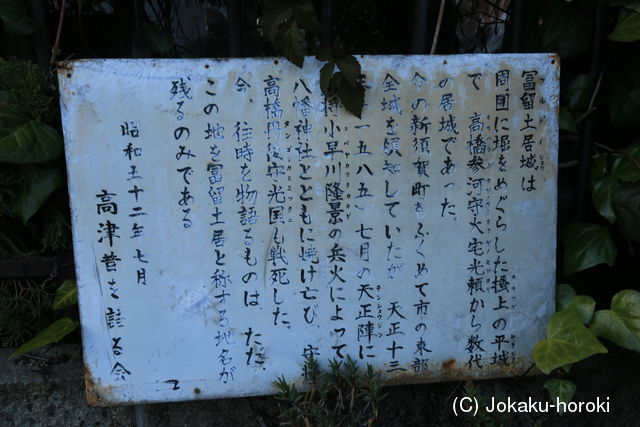 冨留土居城は
周囲に堀をめぐらした掻上の平城
で 高橋参河守大宅光頼から数代
の居城であった。
今の新須賀町をふくめて市の東部
全域を領知していたが 天正十三
一五八五 七月の天正陣に
将小早川隆景の兵火によって
八幡神社とともに焼け亡び、守将
高橋丹後守光国も戦死した。
今、往時を物語るものは、ただ、
この地を富留土居と称する地名が
残るのみである
昭和五十二年七月
高津昔を語る会
(C) Jokaku-horoki